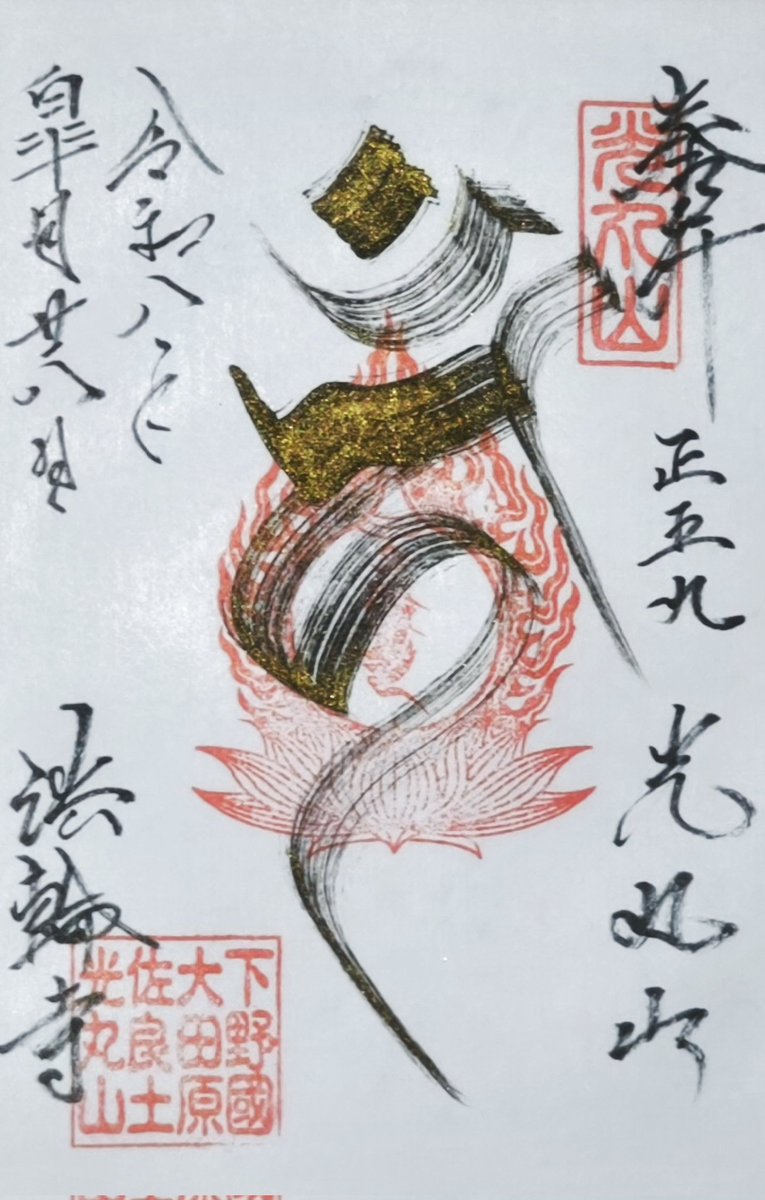 奉拝
光丸山
正五九
光丸山
令和八年
皐月廿八
法輪寺
下野國
大田原
佐良土
光丸山